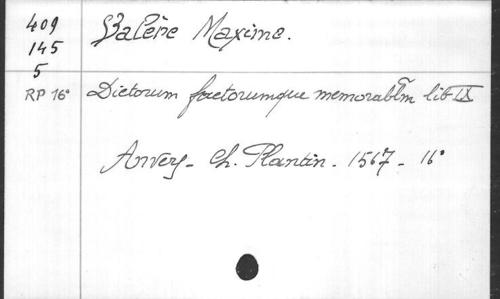 409 Valère Maxime.
145
5
RP 16° Dictorum factorumque memorablm̃ lib IX
Anvers - Ch. Plantin - 1567 - 16°